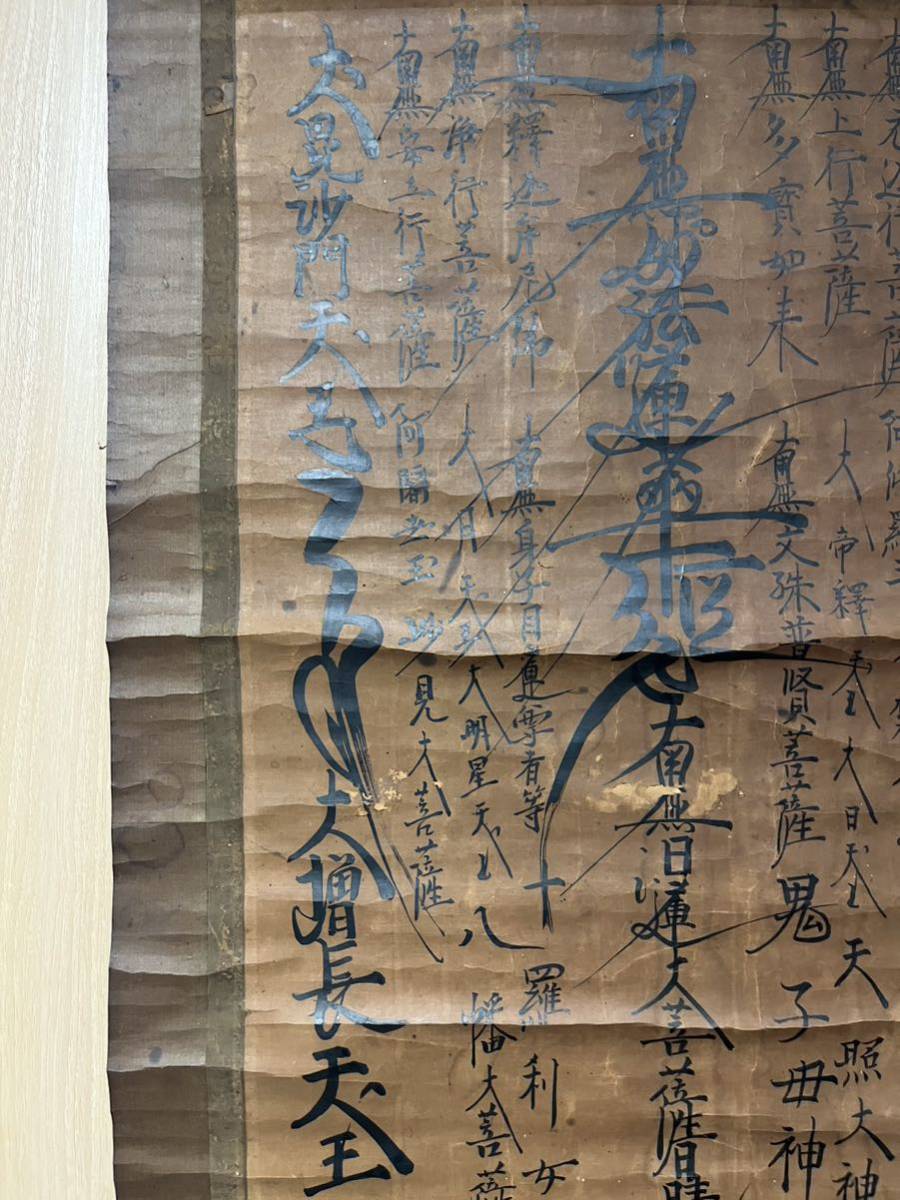 南無無辺行菩薩 阿修羅王
南無上行菩薩 大帝釋天王 大日天王 天照大神
南無多寶如来 南無文殊普賢菩薩 鬼子母神
南無妙法蓮華經 南無日蓮大菩薩
南無釋迦牟尼佛 南無身子目蓮尊者等 十羅刹女
南無浄行菩薩 大月天王 大明星天王 八幡大菩薩
南無安立行菩薩 阿闍世王 妙見大菩薩
大毘沙門天王 大増長天王